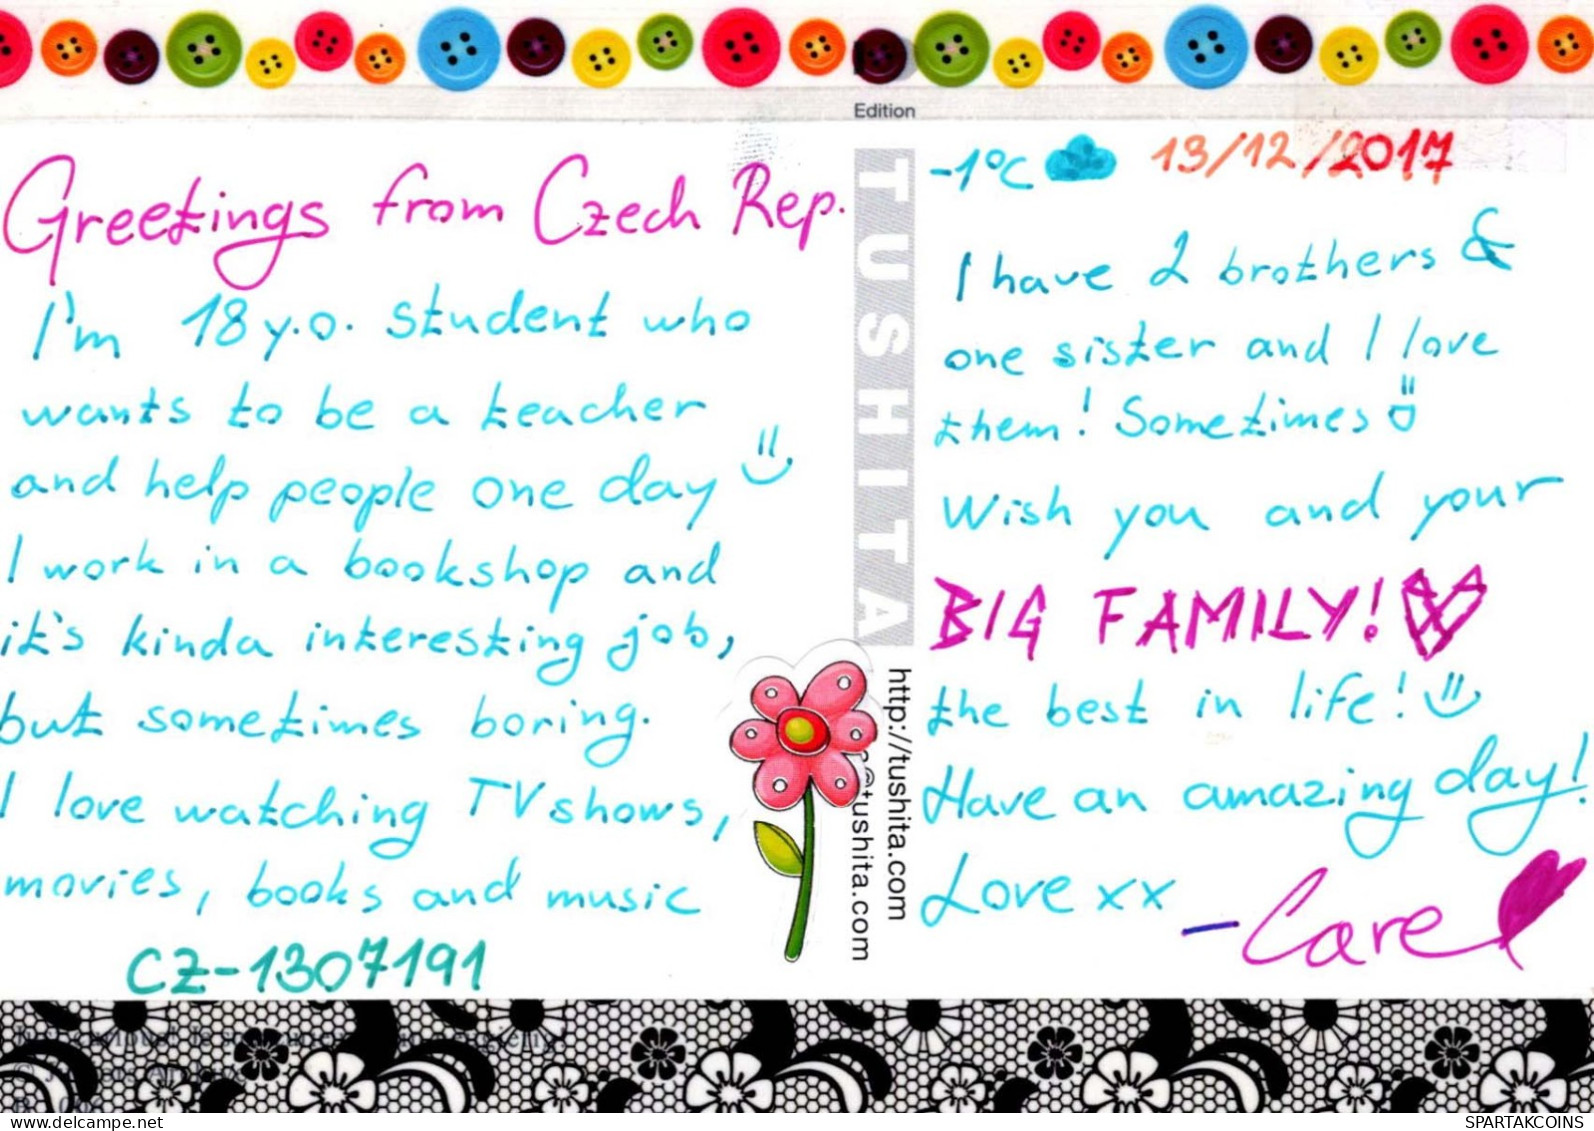 Edition
Greetings from Czech Rep.
I'm 18 y.o. student who
wants to be a teacher
and help people one day
I work in a bookshop and
it's kinda interesting job,
but sometimes boring.
I love watching TV shows,
movies, books and music
CZ-1307191
TUSHITA
http://tushita.com
@tushita.com
-1°C 13/12/2017
I have 2 brothers &
one sister and I love
them! Sometimes
Wish you and your
BIG FAMILY!
the best in life!
Have an amazing day!
Love xx
- Care
www.delcampe.net
SPARTAKCOINS